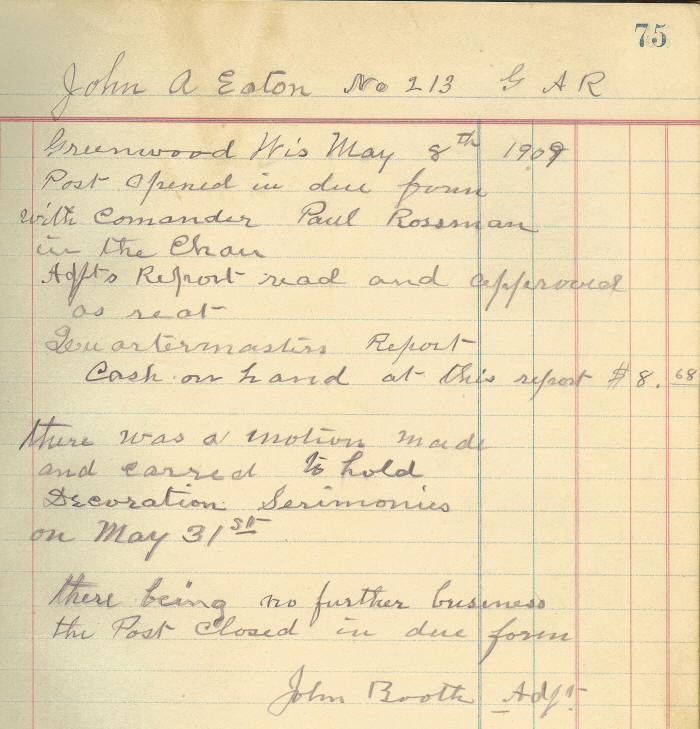 75
John A Eaton No 213 G A R
Greenwood Wis May 8th 1909
Post opened in due form
with Comander Paul Rossman
in the Chair
Adjts Report read and approved
as reat
Quartermasters Report
Cash on hand at this report $8.68
there was a motion made
and carred to hold
Decoration Serimonies
on May 31st
there being no further business
the Post Closed in due form
John Booth Adjt